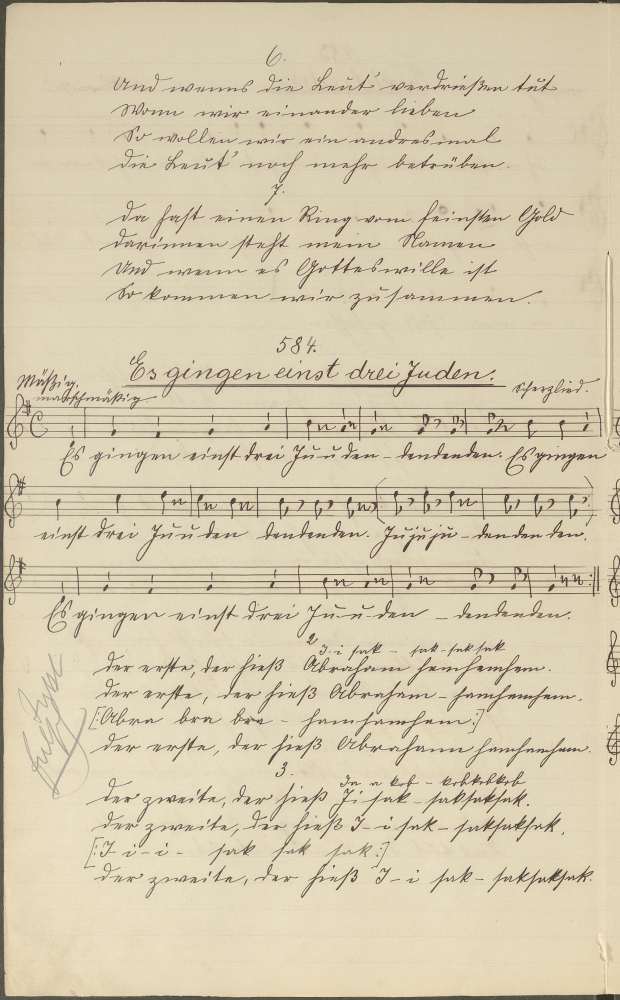 6.
Und wenns die Leut' verdrießen tut
Wenn wir einander lieben
So wollen wir ein andresmal
die Leut' noch mehr betrüben.
7.
Da hast einen Ring vom feinsten Gold
darinnen steht mein Namen
Und wenn es Gotteswille ist
So kommen wir zusammen.
584.
Es gingen einst drei Juden.
Mäßig. Scherzlied.
marschmäßig
Es gingen einst drei Ju-u-den - dendenden. Es gingen
einst drei Ju u den dendenden. Ju ju ju - den den den.
Es gingen einst drei Ju-u-den - dendenden.
2 I-i sak - sak-saksak
der erste, der hieß Abraham hamhamham.
der erste, der hieß Abraham - hamhamham.
[: Abra bra bra - hamhamham :]
der erste, der hieß Abraham hamhamham.
3.
Ja a kob - kobkobkob
der zweite, der hieß Ji sak - saksaksak.
der zweite, der hieß I-i sak - saksaksak.
[: I-i-i- sak sak sak :]
der zweite, der hieß I-i sak - saksaksak.